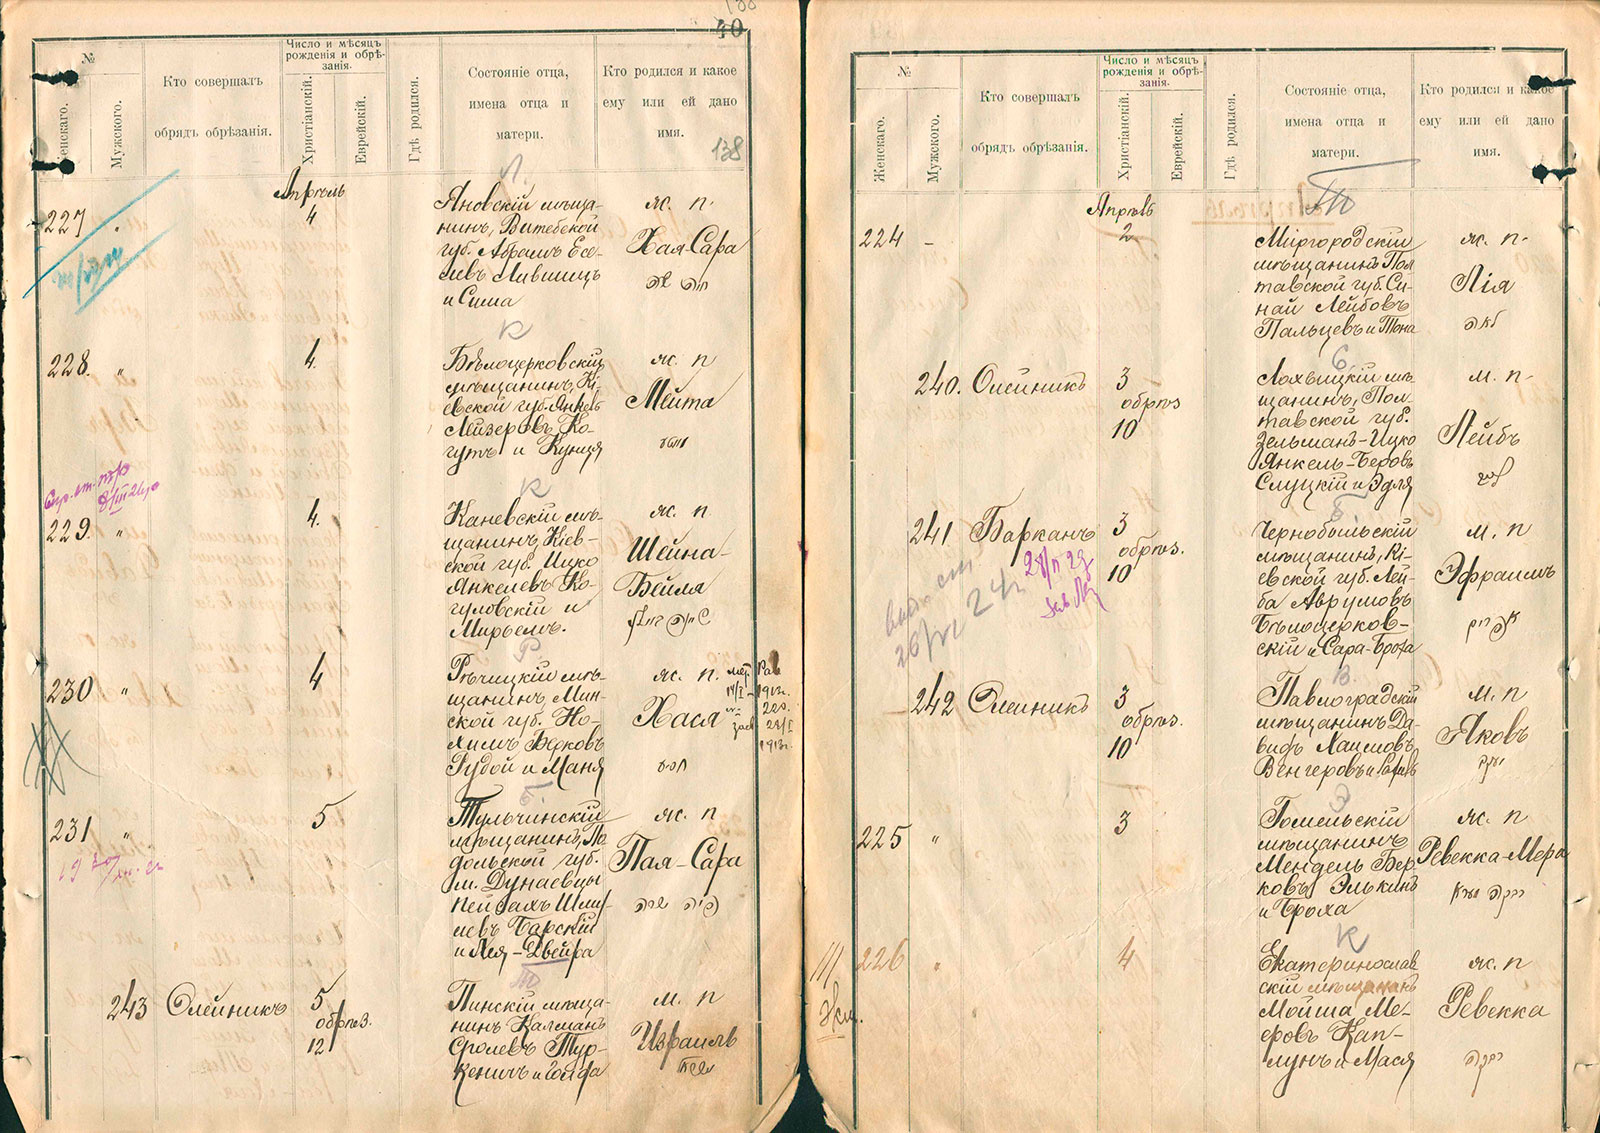 40
138
№
Женскаго.
Мужского.
Кто совершалъ
обрядъ обрѣзанія.
Число и мѣсяцъ
рожденія и обрѣ-
занія.
Христіанскій.
Еврейскій.
Гдѣ родился.
Состояніе отца,
имена отца и
матери.
Кто родился и какое
ему или ей дано
имя.
Апрѣль
227
"
4
Л.
Яновскій мѣща-
нинъ, Витебской
губ. Абрамъ Есе-
левъ Лившицъ
и Сима
ж. п.
Хая-Сара
חיה שרה
228.
"
4.
К
Бѣлоцерковскій
мѣщанинъ, Кі-
евской губ. Янкель
Лейзеровъ Ко-
гутъ и Куница
ж. п
Мейта
229.
"
4.
К
Каневскій мѣ-
щанинъ, Кіев-
ской губ. Ицко
Янкелевъ Ко-
гуловскій и
Мирьемъ.
ж. п
Шейна-
Бейля
230
"
4
Р.
Рѣчицкій мѣ-
щанинъ, Мин-
ской губ. Но-
химъ Берковъ
Рудой и Маня
ж. п.
Хася
231
"
5
Б.
Тульчинскій
мѣщанинъ, По
дольской губ.
м. Дунаевцы
Пейсахъ Шму-
левъ Барскій
и Лея-Двейра
ж. п
Пая-Сара
פייה שרה
243
Олейникъ
5
обрѣз.
12
Т
Пинскій мѣща-
нинъ Калманъ
Сролевъ Тур-
кеничъ и Голда
м. п
Израиль
№
Женскаго.
Мужского.
Кто совершалъ
обрядъ обрѣзанія.
Число и мѣсяцъ
рожденія и обрѣ-
занія.
Христіанскій.
Еврейскій.
Гдѣ родился.
Состояніе отца,
имена отца и
матери.
Кто родился и какое
ему или ей дано
имя.
Апрѣль
224
-
2
Миргородскій
мѣщанинъ Пол
тавской губ. Си-
най Лейбовъ
Пальцевъ и Тона
ж. п.
Лія
לאה
240.
Олейникъ
3
обрѣз
10
С
Лохвицкій мѣ-
щанинъ, Пол-
тавской губ.
Зельманъ-Ицко
Янкель-Беровъ
Слуцкій и Эдля
м. п.
Лейбъ
241
Барканъ
3
обрѣз.
10
Б.
Чернобыльскій
мѣщанинъ, Кі-
евской губ. Лей-
ба Аврумовъ
Бѣлоцерков-
скій и Сара-Броха
м. п
Эфраимъ
אפרים
242
Олейникъ
3
обрѣз.
10
В.
Павлоградскій
мѣщанинъ Да-
видъ Хаимовъ
Венгеровъ и Рахиль
м. п
Яковъ
יעקב
225
"
3
Э
Гомельскій
мѣщанинъ
Мендель Бер-
ковъ Элькинъ
и Броха
ж. п
Ревекка-Мера
226
"
4
К
Екатеринослав
скій мѣщанинъ
Мойша Ме-
еровъ Кап-
лунъ и Мася
ж. п
Ревекка
רבקה